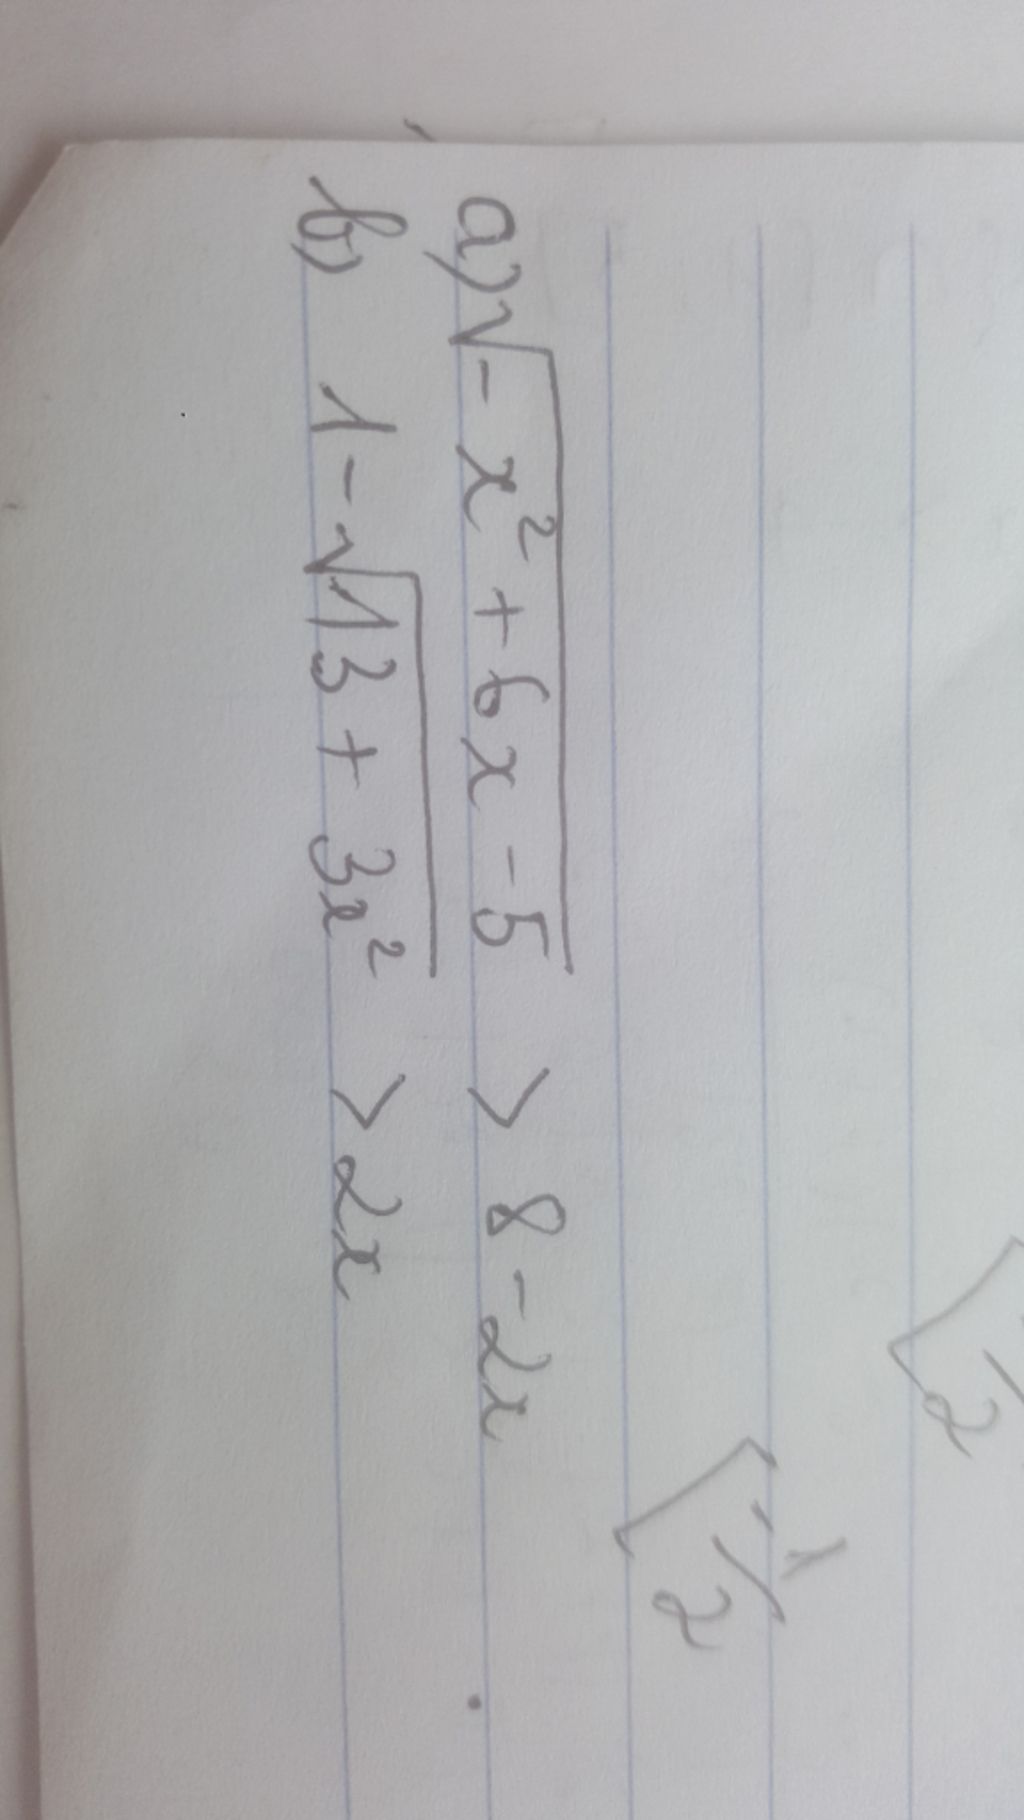 a) √-x² + 6x - 5 > 8 - 2x
b) 1 - √13 + 3x² > 2x